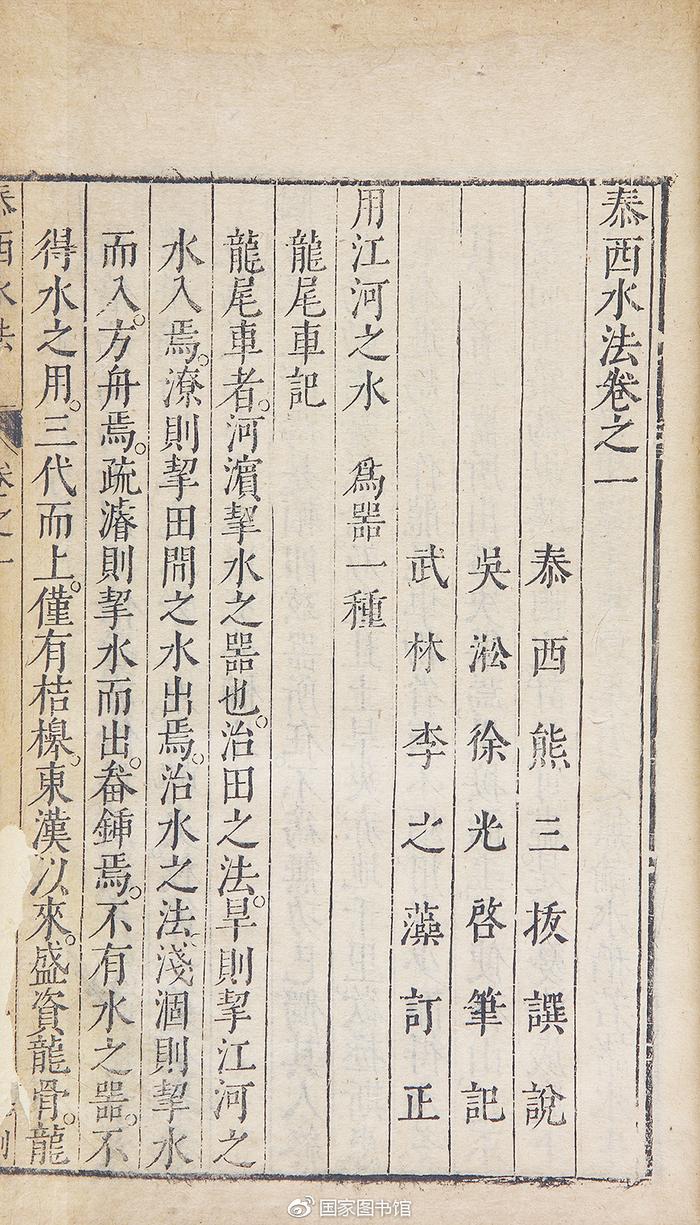 泰西水法卷之一
泰西熊三拔譔說
吳淞徐光啓筆記
武林李之藻訂正
用江河之水　爲器一種
龍尾車記
龍尾車者。河濱挈水之器也。治田之法。旱則挈江河之
水入焉。潦則挈田間之水出焉。治水之法、淺涸則挈水
而入。方舟焉。疏濬則挈水而出。畚鍤焉。不有水之器。不
得水之用。三代而上。僅有桔橰。東漢以來。盛資龍骨。龍
泰西水法　卷之一
国家图书馆